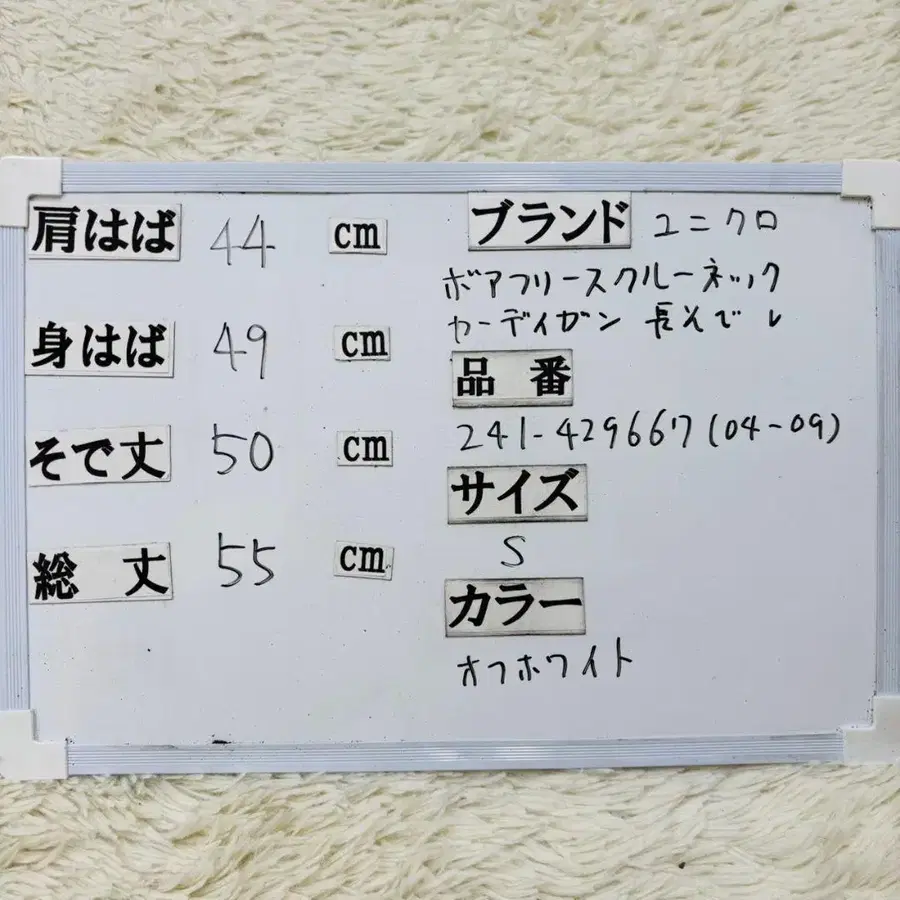 肩はば 44 cm
身はば 49 cm
そで丈 50 cm
総 丈 55 cm
ブランド ユニクロ
ボアフリースクルーネック
カーディガン 長そで レ
品 番
241-429667(04-09)
サイズ
S
カラー
オフホワイト